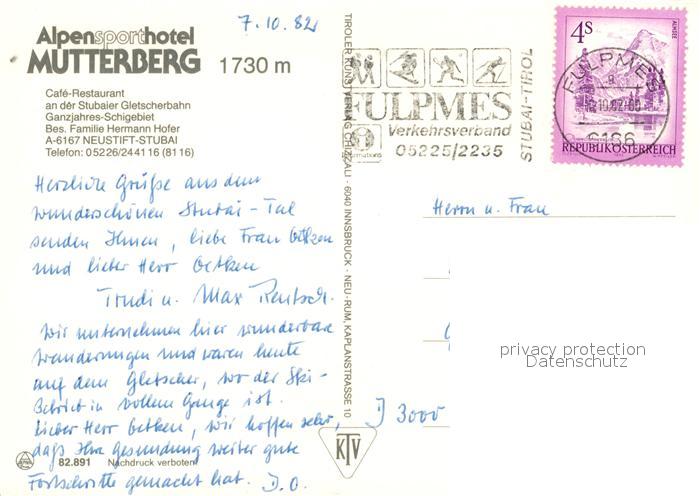 7.10.82
Alpensporthotel
MUTTERBERG 1730 m
Café-Restaurant
an der Stubaier Gletscherbahn
Ganzjahres-Schigebiet
Bes. Familie Hermann Hofer
A-6167 NEUSTIFT-STUBAI
Telefon: 05226/244116 (8116)
Herzliche Grüße aus dem
wunderschönen Stubai-Tal
senden Ihnen, liebe Frau Oetken
und lieber Herr Oetken
Trudi u. Max Rentsch.
Wir unternehmen hier wunderbare
Wanderungen und waren heute
auf dem Gletscher, wo der Ski-
Betrieb in vollem Gange ist.
Lieber Herr Oetken, wir hoffen sehr,
daß Ihre Gesundung weiter gute
Fortschritte gemacht hat. D.O.
82.891 Nachdruck verboten
TIROLER KUNSTVERLAG CHIZZALI · 6040 INNSBRUCK · NEU-RUM, KAPLANSTRASSE 10
KTV
FULPMES
Verkehrsverband
05225/2235
Informations
STUBAI-TIROL
4S
ALMSEE
REPUBLIK ÖSTERREICH
FULPMES
6166
Herrn u. Frau
D 3000
privacy protection
Datenschutz